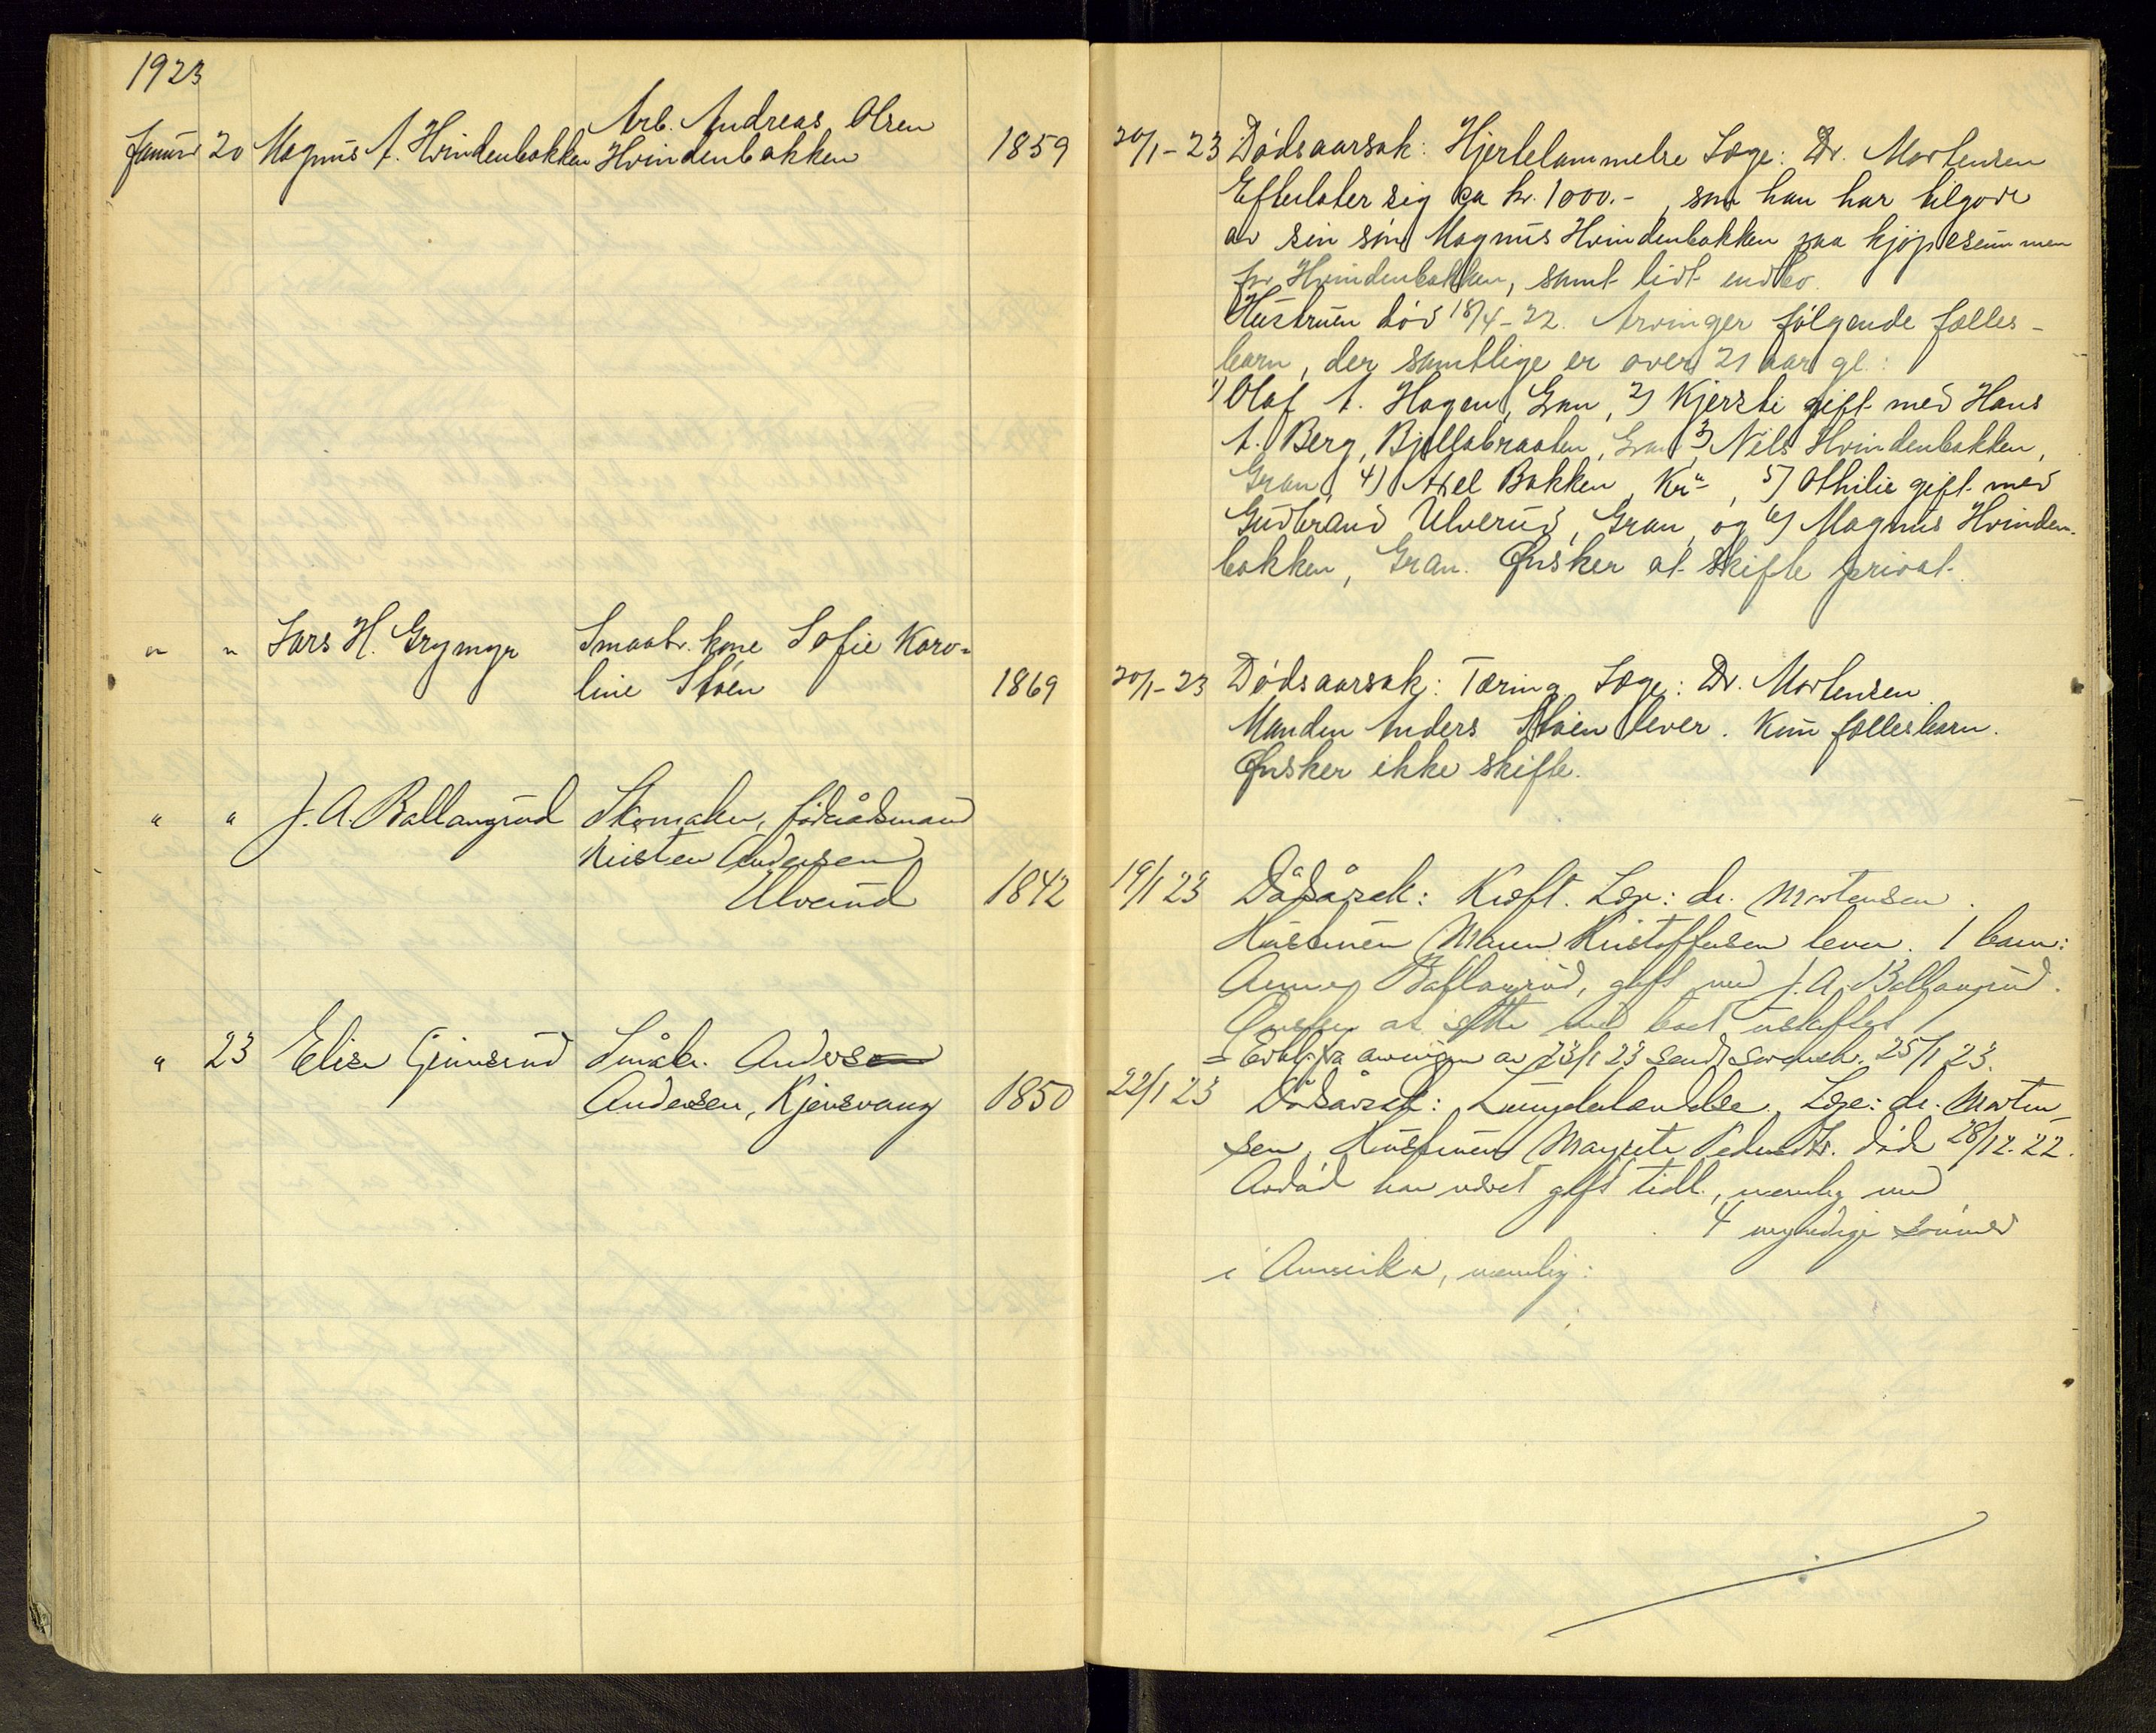 1923
Arb. Andreas Olsen
Januar 20 Magnus A. Hvindenbakken Hvindenbakken 1859
20/1-23 Dødsaarsak: Hjertelammelse Læge: Dr. Mortensen
Efterlater sig ca kr. 1000.-, som han har tilgode
av sin søn Magnus Hvindenbakken paa kjøpesummen
for Hvindenbakken, samt lidt indbo.
Hustruen død 18/4-22. Arvinger følgende fælles-
barn, der samtlige er over 21 aar gl.:
1) Olaf A. Hagen, Gran, 2) Kjersti gift med Hans
A. Berg, Bjellabraaten, Gran 3) Nils Hvindenbakken,
Gran, 4) Axel Bakken, Kr.a, 5) Othilie gift med
Gudbrand Ulverud, Gran, og 6) Magnus Hvinden-
bakken, Gran. Ønsker at skifte privat.
" " Lars H. Grymyr Smaabr. kone Sofie Karo-
line Støen 1869
20/1-23 Dødsaarsak: Tæring Læge: Dr. Mortensen.
Manden Anders Støen lever. Kun fællesbarn.
Ønsker ikke skifte.
" " J. A. Ballangrud Skomaker, føderådsmand
Kristen Andersen
Ulverud 1842
19/1 23 Dødsårsak: Kræft. Læge: dr. Mortensen.
Hustruen Maren Kristoffersen lever. 1 barn:
Ballangrud, gift med J. A. Ballangrud.
Ønsker at sitte med boet uskiftet
= Erkl. fra arvingen av 23/1 23 sendt sorensk. 25/1 23.
" 23 Elise Grinerud Småbr. Anders
Andersen, Kjersvang 1850
22/1 23 Dødsårsak: Lungebetændelse. Læge: dr. Morten-
sen. Hustruen Margrete Pedersdtr. død 28/12-22.
Avdød har været gift tidl., nemlig med
4 myndige sønner
i Amerika, nemlig: